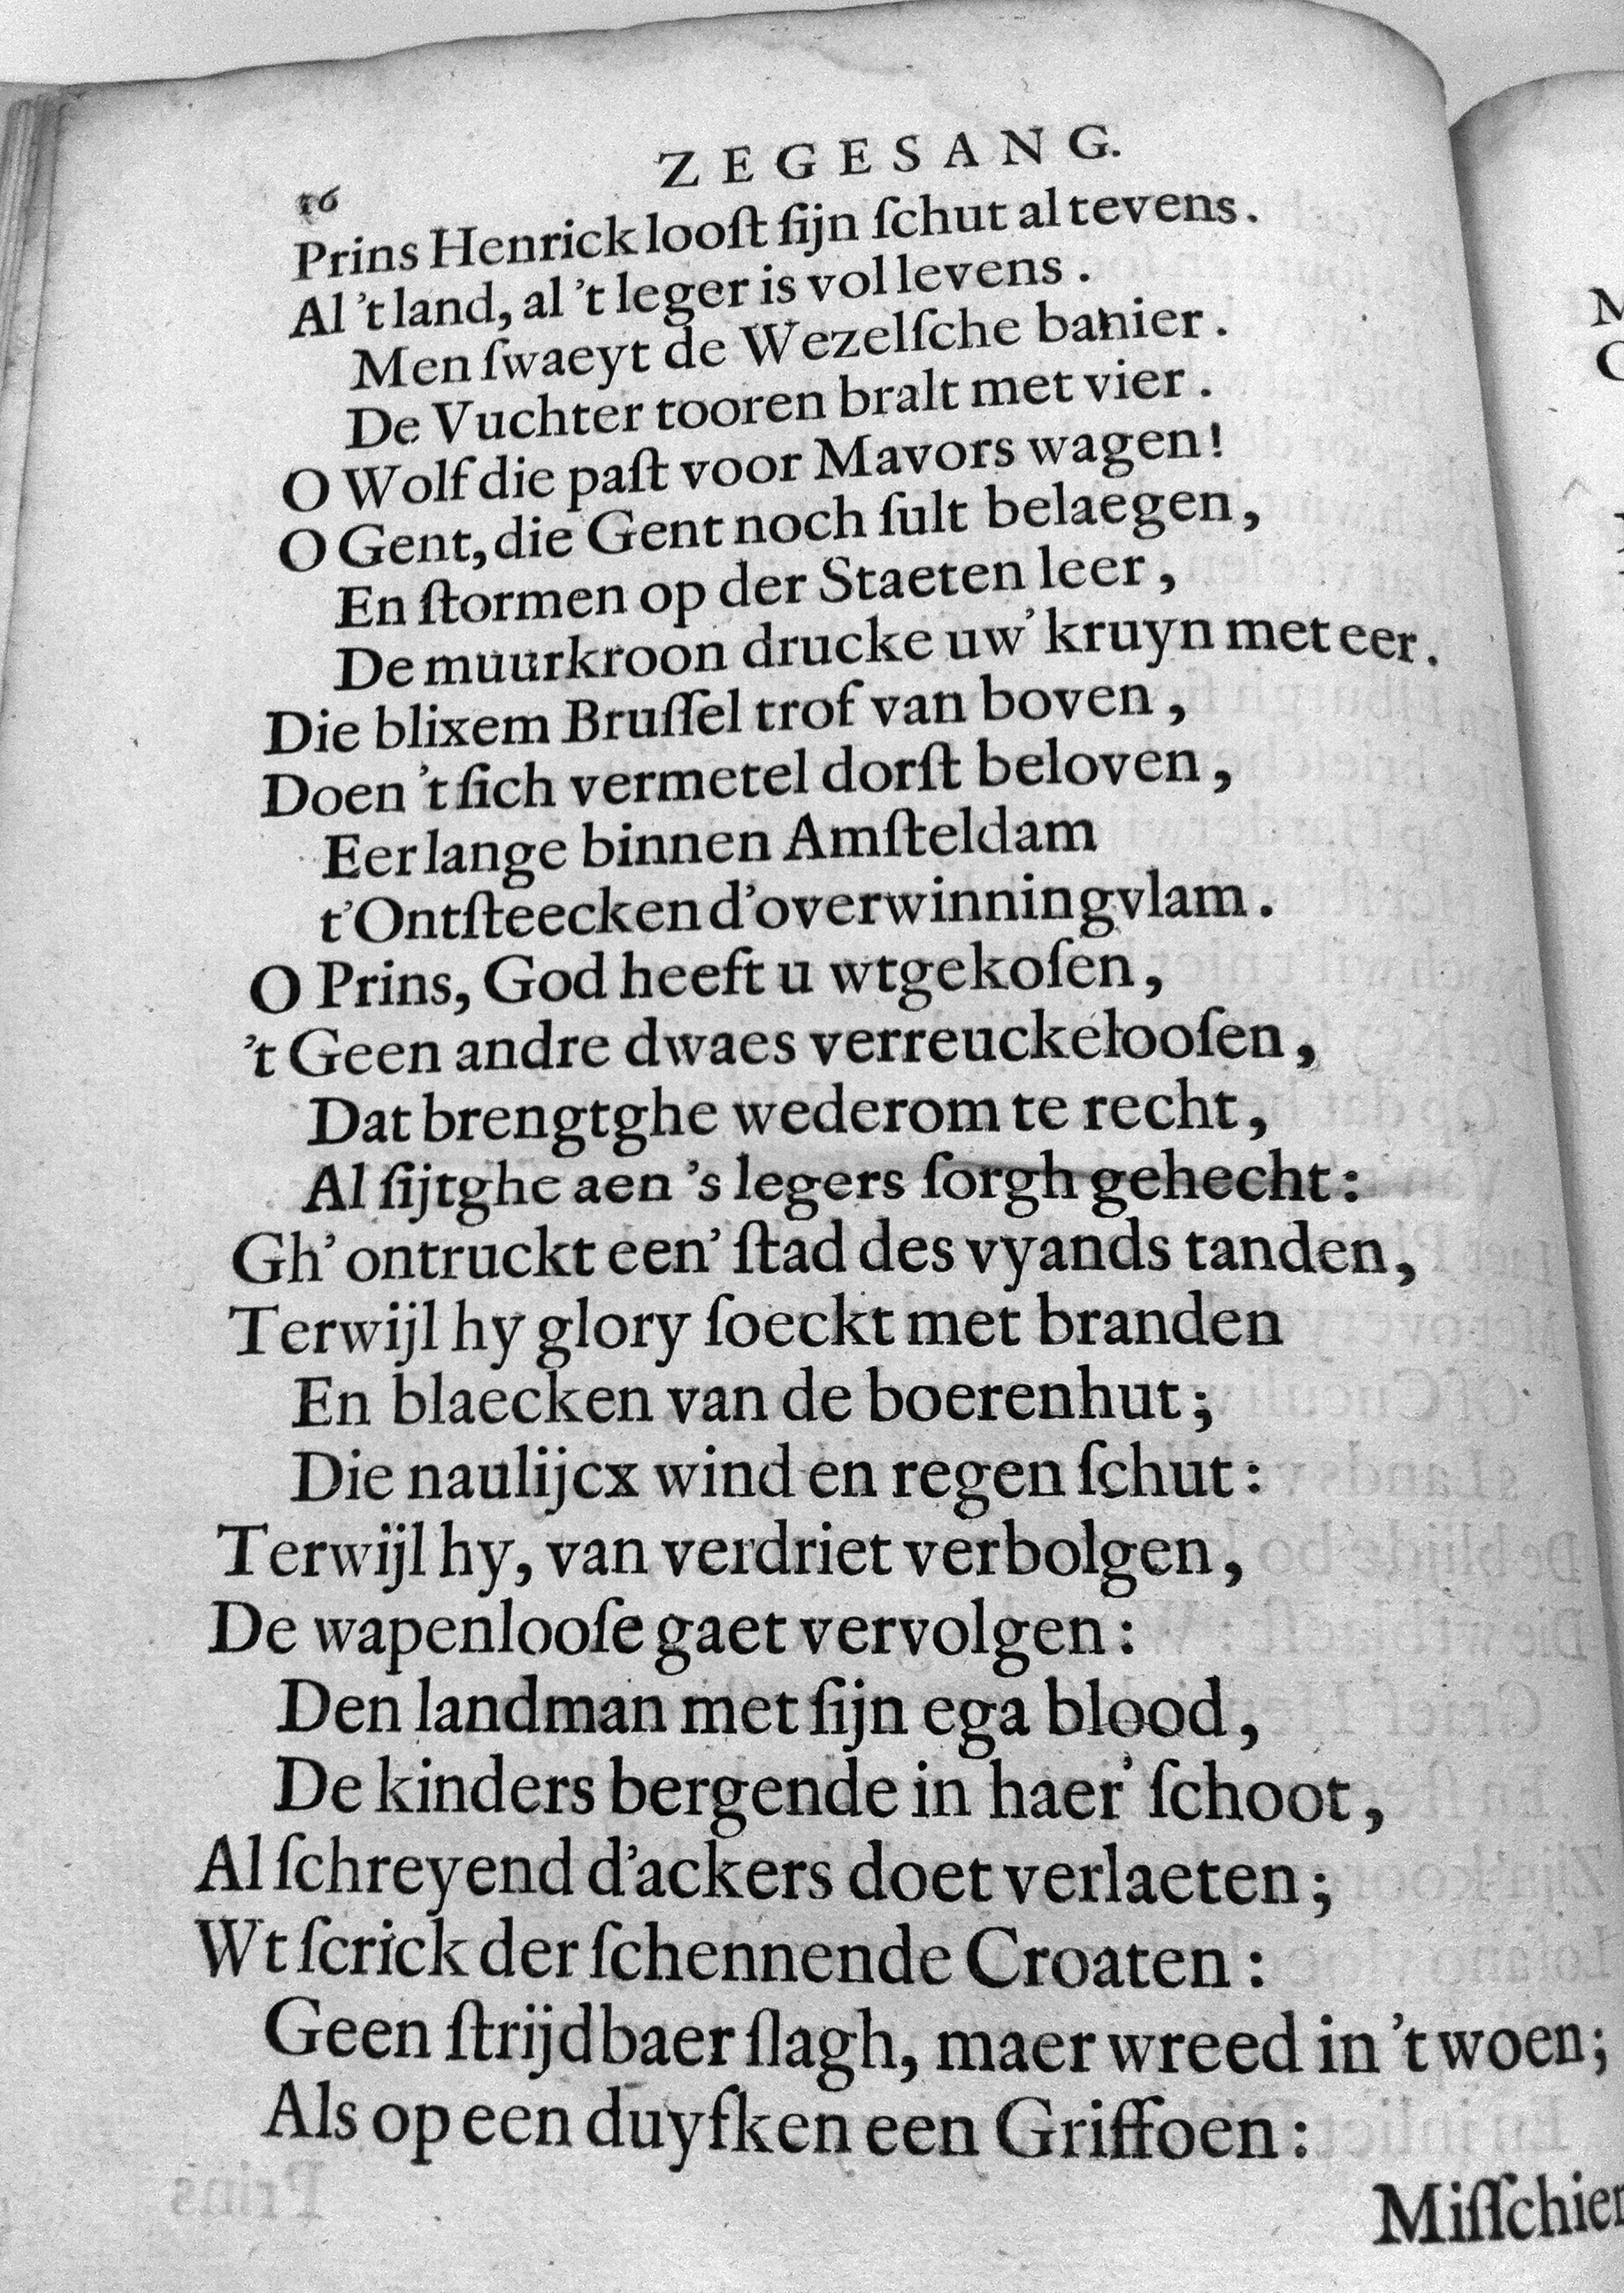 ZEGESANG.
16
Prins Henrick looſt ſijn ſchut al tevens.
Al 't land, al 't leger is vol levens.
Men ſwaeyt de Wezelſche banier.
De Vuchter tooren bralt met vier.
O Wolf die paſt voor Mavors wagen!
O Gent, die Gent noch ſult belaegen,
En ſtormen op der Staeten leer,
De muurkroon drucke uw' kruyn met eer.
Die blixem Bruſſel trof van boven,
Doen 't ſich vermetel dorſt beloven,
Eer lange binnen Amſteldam
t'Ontſteecken d'overwinningvlam.
O Prins, God heeft u wtgekoſen,
't Geen andre dwaes verreuckelooſen,
Dat brengtghe wederom te recht,
Al ſijtghe aen 's legers ſorgh gehecht:
Gh' ontruckt een' ſtad des vyands tanden,
Terwijl hy glory ſoeckt met branden
En blaecken van de boerenhut;
Die naulijcx wind en regen ſchut:
Terwijl hy, van verdriet verbolgen,
De wapenlooſe gaet vervolgen:
Den landman met ſijn ega blood,
De kinders bergende in haer' ſchoot,
Al ſchreyend d'ackers doet verlaeten;
Wt ſcrick der ſchennende Croaten:
Geen ſtrijdbaer ſlagh, maer wreed in 't woen;
Als op een duyfken een Griffoen:
Miſſchien